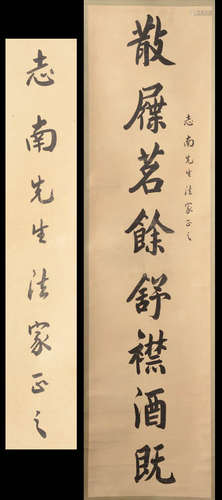 志南先生法家正之
散屧茗餘舒襟酒既
志南先生法家正之